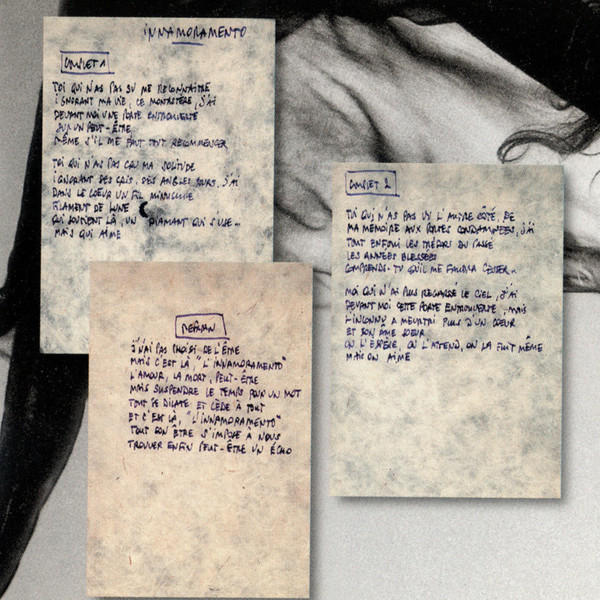 INNAMORAMENTO
COUPLET 1
TOI QUI N'AS PAS SU ME RECONNAÎTRE
IGNORANT MA VIE, CE MONASTÈRE, J'AI
DEVANT MOI UNE PORTE ENTROUVERTE
SUR UN PEUT-ÊTRE
MÊME S'IL ME FAUT TOUT RECOMMENCER
TOI QUI N'AS PAS CRU MA SOLITUDE
IGNORANT SES CRIS, SES ANGLES DURS, J'AI
DANS LE COEUR UN FIL MINUSCULE
FILAMENT DE LUNE
QUI SOUTIENT LÀ, UN DIAMANT QUI S'USE...
MAIS QUI AIME
REFRAIN
J'N'AI PAS CHOISI DE L'ÊTRE
MAIS C'EST LÀ, "L'INNAMORAMENTO"
L'AMOUR, LA MORT, PEUT-ÊTRE
MAIS SUSPENDRE LE TEMPS POUR UN MOT
TOUT SE DILATE ET CÈDE À TOUT
ET C'EST LÀ, "L'INNAMORAMENTO"
TOUT SON ÊTRE S'IMPOSE À NOUS
TROUVER ENFIN PEUT-ÊTRE UN ÉCHO
COUPLET 2
TOI QUI N'AS PAS VU L'AUTRE CÔTÉ, DE
MA MÉMOIRE AUX PORTES CONDAMNÉES, J'AI
TOUT ENFOUI LES TRÉSORS DU PASSÉ
LES ANNÉES BLESSÉES
COMPRENDS-TU QU'IL ME FAUDRA CESSER...
MOI QUI N'AI PLUS REGARDÉ LE CIEL, J'AI
DEVANT MOI CETTE PORTE ENTROUVERTE, MAIS
L'INCONNU A MEURTRI PLUS D'UN COEUR
ET SON ÂME SOEUR
ON L'ESPÈRE, ON L'ATTEND, ON LA FUIT MÊME
MAIS ON AIME